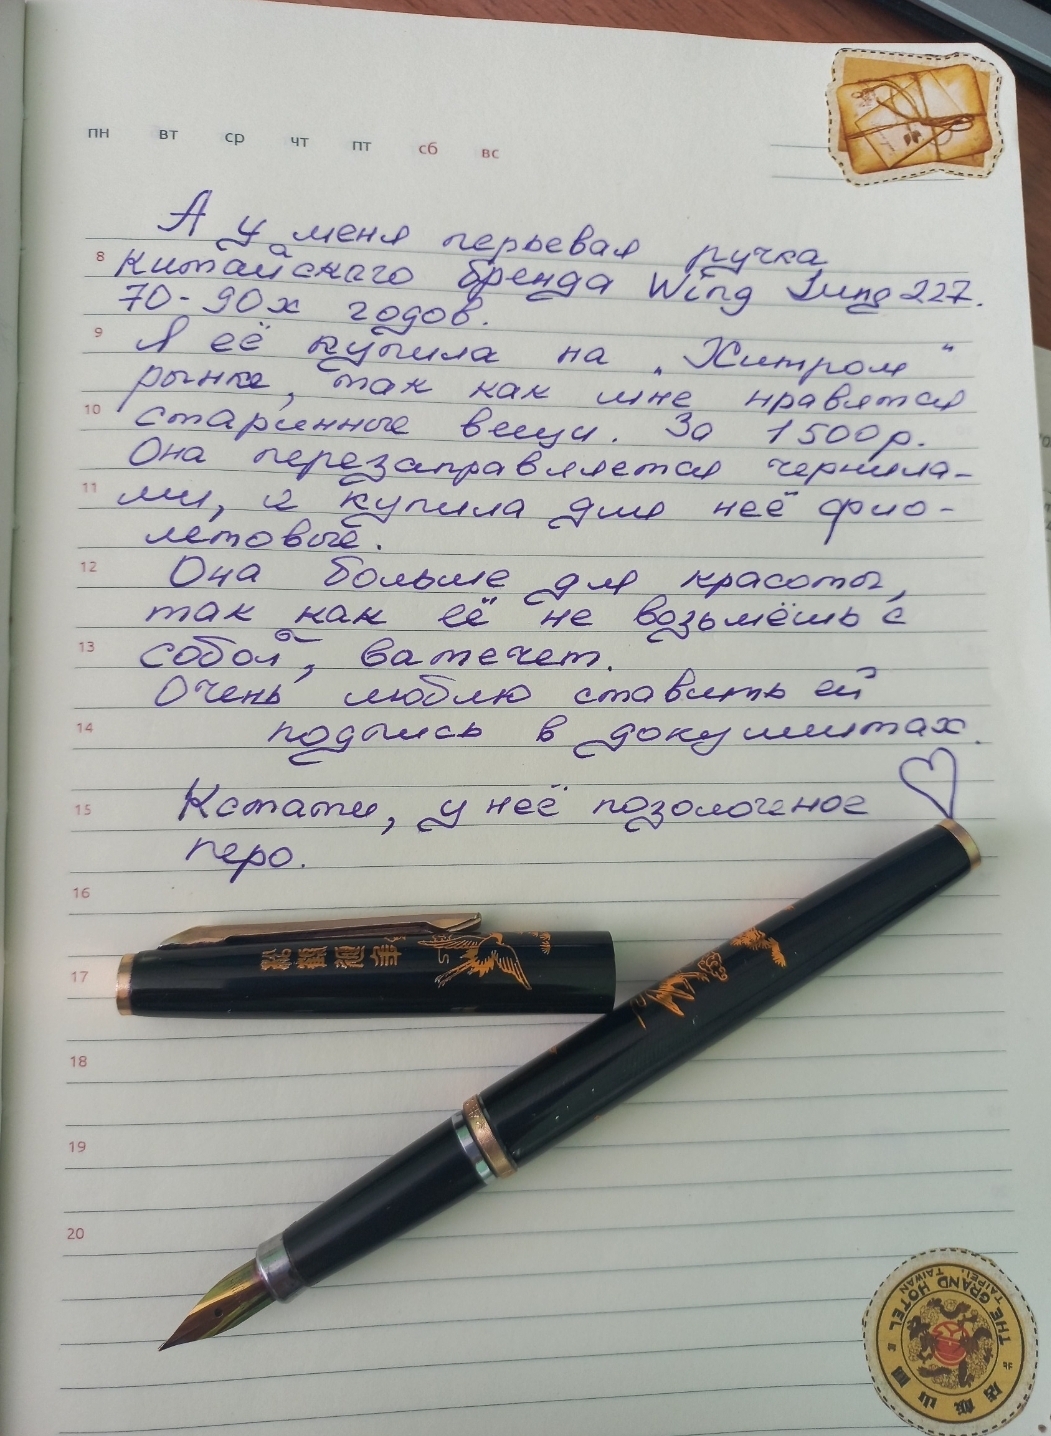 пн вт ср чт пт сб вс
А у меня перьевая ручка
8 китайского бренда Wing Sung 227.
70-90х годов.
9 Я её купила на „Хитром“
рынке, так как мне нравятся
10 старинные вещи. За 1500р.
Она перезаправляется чернила-
11 ми, я купила для неё фио-
летовые.
12 Она больше для красоты,
так как её не возьмёшь с
13 собой, ватечет.
Очень люблю ставить ей
14 подпись в документах.
15 Кстати, у неё позолоченое
перо.
16
17
18
19
20
THE GRAND HOTEL
TAIPEI, TAIWAN